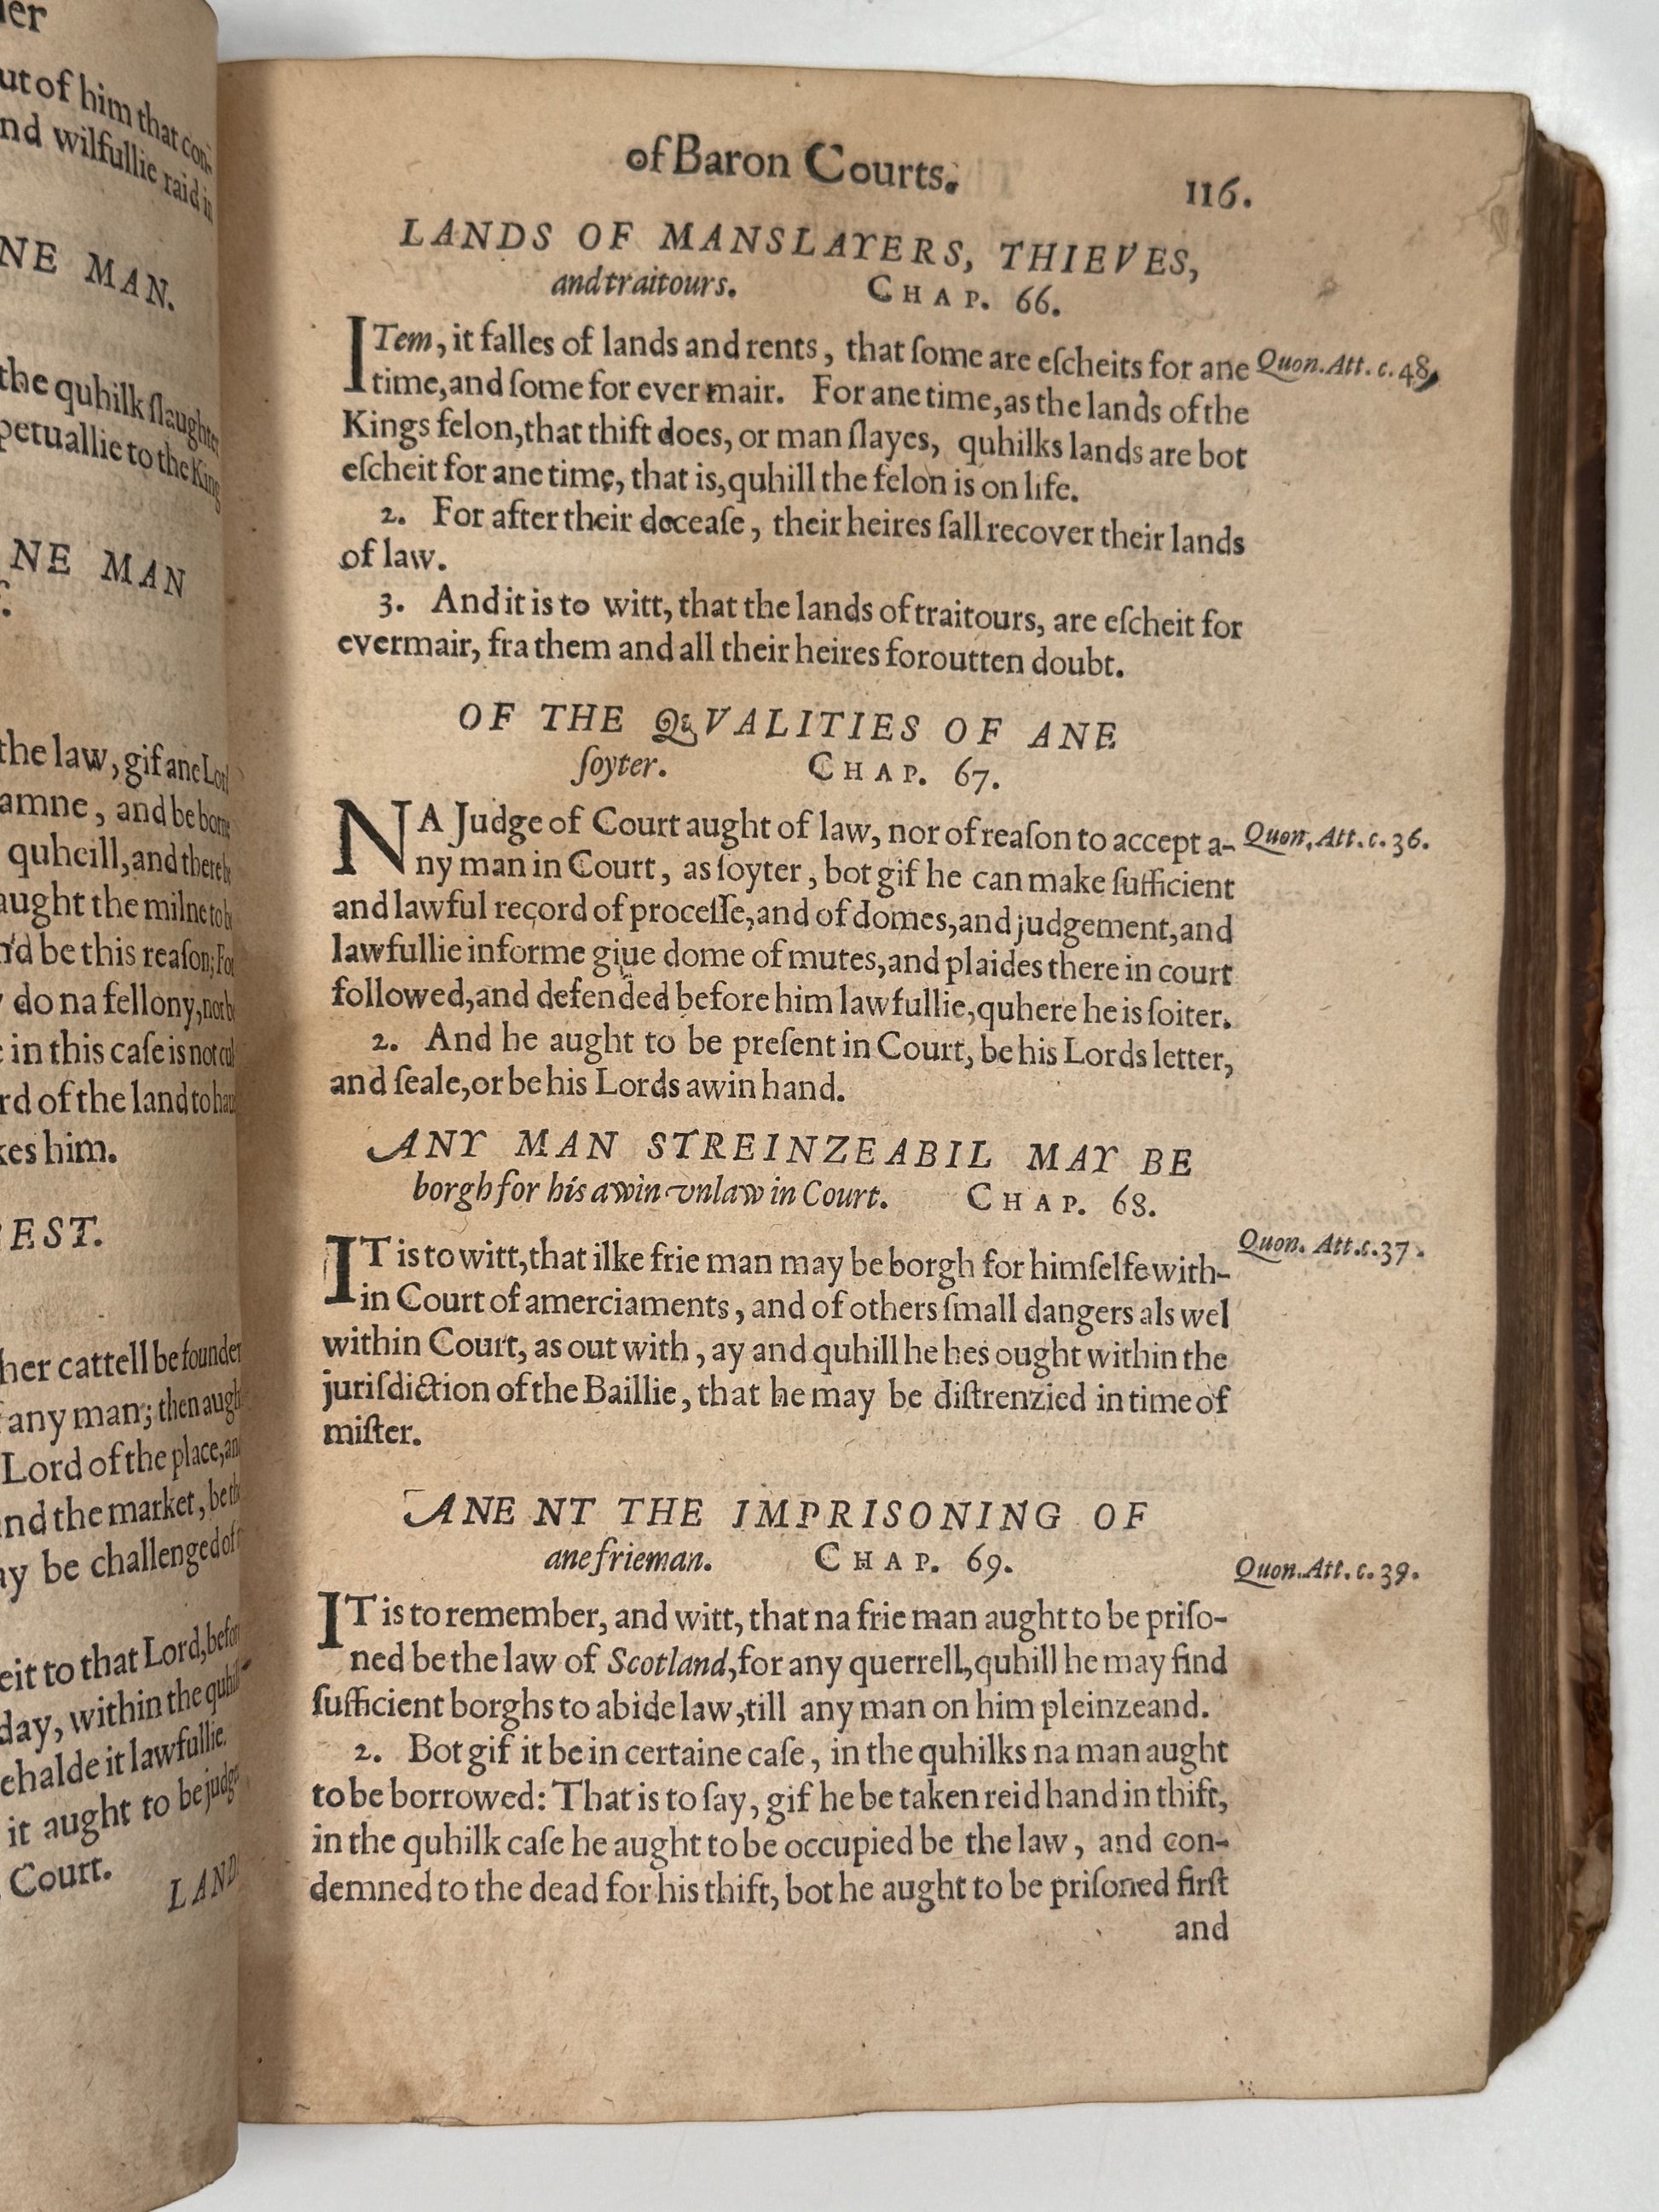 ler
ut of him that con-
nd wilfullie raid in
NE MAN.
the quhilk slaughter
petuallie to the King
NE MAN
the law, gif ane Lord
amne, and be borne
quheill, and there be
aught the milne to be
n'd be this reason; For
do na fellony, not be
in this case is not cul
rd of the land to haue
kes him.
EST.
her cattell be founden
any man; then aught
Lord of the place, and
nd the market, be the
ay be challenged of
eit to that Lord, before
day, within the quhilk
ehalde it lawfullie.
it aught to be judge
Court.
LANDS
of Baron Courts.
116.
LANDS OF MANSLAYERS, THIEVES,
and traitours. CHAP. 66.
ITem, it falles of lands and rents, that ſome are eſcheits for ane Quon. Att. c. 48,
time, and ſome for ever mair. For ane time, as the lands of the
Kings felon, that thift does, or man ſlayes, quhilks lands are bot
eſcheit for ane time, that is, quhill the felon is on life.
2. For after their deceaſe, their heires ſall recover their lands
of law.
3. And it is to witt, that the lands of traitours, are eſcheit for
evermair, fra them and all their heires foroutten doubt.
OF THE QVALITIES OF ANE
ſoyter. CHAP. 67.
NA Judge of Court aught of law, nor of reaſon to accept a- Quon. Att. c. 36.
ny man in Court, as ſoyter, bot gif he can make ſufficient
and lawful record of proceſſe, and of domes, and judgement, and
lawfullie informe giue dome of mutes, and plaides there in court
followed, and defended before him lawfullie, quhere he is ſoiter.
2. And he aught to be preſent in Court, be his Lords letter,
and ſeale, or be his Lords awin hand.
ANY MAN STREINZEABIL MAY BE
borgh for his awin vnlaw in Court. CHAP. 68.
Quon. Att. c. 37.
IT is to witt, that ilke frie man may be borgh for himſelfe with-
in Court of amerciaments, and of others ſmall dangers als wel
within Court, as out with, ay and quhill he hes ought within the
juriſdiction of the Baillie, that he may be diſtrenzied in time of
miſter.
ANE NT THE IMPRISONING OF
ane frieman. CHAP. 69.
Quon. Att. c. 39.
IT is to remember, and witt, that na frie man aught to be priſo-
ned be the law of Scotland, for any querrell, quhill he may find
ſufficient borghs to abide law, till any man on him pleinzeand.
2. Bot gif it be in certaine caſe, in the quhilks na man aught
to be borrowed: That is to ſay, gif he be taken reid hand in thift,
in the quhilk caſe he aught to be occupied be the law, and con-
demned to the dead for his thift, bot he aught to be priſoned firſt
and